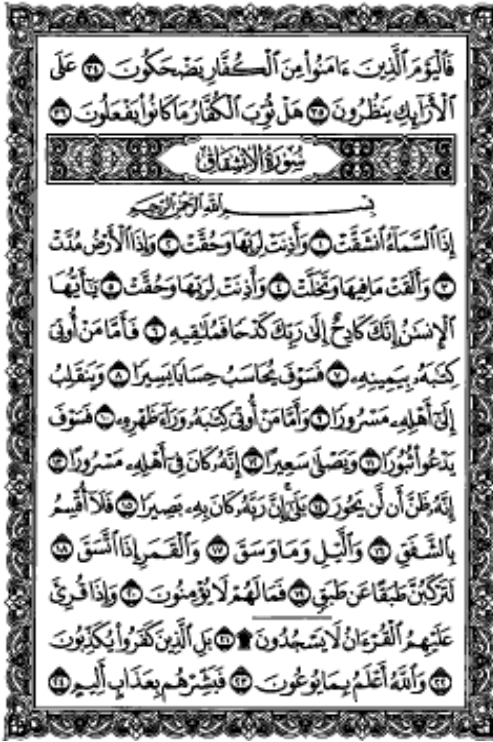 فَٱلْيَوْمَ ٱلَّذِينَ ءَامَنُوا۟ مِنَ ٱلْكُفَّارِ يَضْحَكُونَ ٣٤ عَلَى
ٱلْأَرَآئِكِ يَنظُرُونَ ٣٥ هَلْ ثُوِّبَ ٱلْكُفَّارُ مَا كَانُوا۟ يَفْعَلُونَ ٣٦
سُورَةُ الانشِقَاق
بِسْمِ ٱللَّهِ ٱلرَّحْمَٰنِ ٱلرَّحِيمِ
إِذَا ٱلسَّمَآءُ ٱنشَقَّتْ ١ وَأَذِنَتْ لِرَبِّهَا وَحُقَّتْ ٢ وَإِذَا ٱلْأَرْضُ مُدَّتْ
٣ وَأَلْقَتْ مَا فِيهَا وَتَخَلَّتْ ٤ وَأَذِنَتْ لِرَبِّهَا وَحُقَّتْ ٥ يَٰٓأَيُّهَا
ٱلْإِنسَٰنُ إِنَّكَ كَادِحٌ إِلَىٰ رَبِّكَ كَدْحًا فَمُلَٰقِيهِ ٦ فَأَمَّا مَنْ أُوتِىَ
كِتَٰبَهُۥ بِيَمِينِهِۦ ٧ فَسَوْفَ يُحَاسَبُ حِسَابًا يَسِيرًا ٨ وَيَنقَلِبُ
إِلَىٰٓ أَهْلِهِۦ مَسْرُورًا ٩ وَأَمَّا مَنْ أُوتِىَ كِتَٰبَهُۥ وَرَآءَ ظَهْرِهِۦ ١٠ فَسَوْفَ
يَدْعُوا۟ ثُبُورًا ١١ وَيَصْلَىٰ سَعِيرًا ١٢ إِنَّهُۥ كَانَ فِىٓ أَهْلِهِۦ مَسْرُورًا ١٣
إِنَّهُۥ ظَنَّ أَن لَّن يَحُورَ ١٤ بَلَىٰٓ إِنَّ رَبَّهُۥ كَانَ بِهِۦ بَصِيرًا ١٥ فَلَآ أُقْسِمُ
بِٱلشَّفَقِ ١٦ وَٱلَّيْلِ وَمَا وَسَقَ ١٧ وَٱلْقَمَرِ إِذَا ٱتَّسَقَ ١٨
لَتَرْكَبُنَّ طَبَقًا عَن طَبَقٍ ١٩ فَمَا لَهُمْ لَا يُؤْمِنُونَ ٢٠ وَإِذَا قُرِئَ
عَلَيْهِمُ ٱلْقُرْءَانُ لَا يَسْجُدُونَ ۩ ٢١ بَلِ ٱلَّذِينَ كَفَرُوا۟ يُكَذِّبُونَ
٢٢ وَٱللَّهُ أَعْلَمُ بِمَا يُوعُونَ ٢٣ فَبَشِّرْهُم بِعَذَابٍ أَلِيمٍ ٢٤